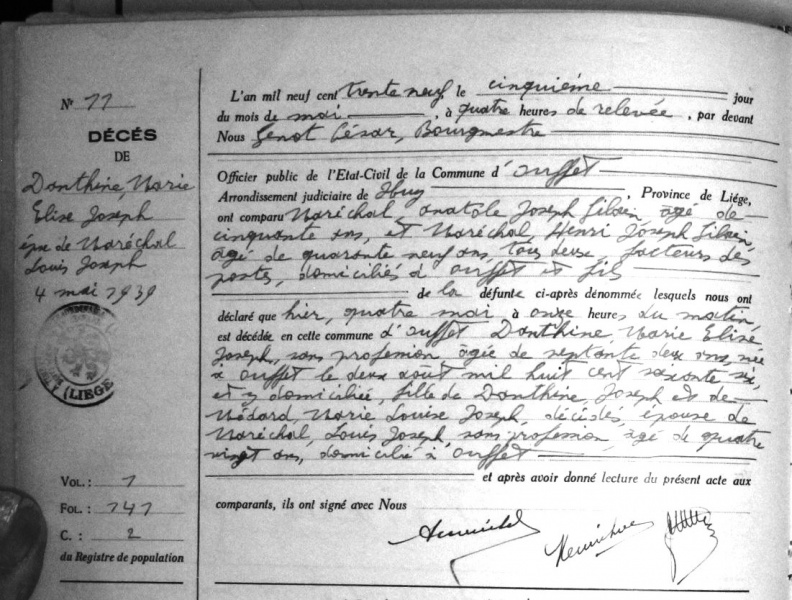 N° 11
DÉCÉS
DE
Danthine, Marie
Elise Joseph
épse de Maréchal
Louis Joseph
4 mai 1939
(LIÈGE)
VOL.: 1
FOL.: 141
C.: 2
du Registre de population
L'an mil neuf cent trente neuf, le cinquième jour
du mois de mai, à quatre heures de relevée, par devant
Nous Genot César, Bourgmestre
Officier public de l'Etat-Civil de la Commune d'Ouffet
Arrondissement judiciaire de Huy, Province de Liége,
ont comparu Maréchal, Anatole Joseph Ghislain, âgé de
cinquante ans, et Maréchal, Henri Joseph Ghislain,
âgé de quarante neuf ans, tous deux, facteurs des
postes, domiciliés à Ouffet et fils
de la défunte ci-après dénommée lesquels nous ont
déclaré que hier, quatre mai, à onze heures du matin,
est décédée en cette commune d'Ouffet Danthine, Marie Elise
Joseph, sans profession âgée de septante deux ans, née
à Ouffet le deux août mil huit cent soixante six,
et y domiciliée, fille de Danthine, Joseph et de
Médard, Marie Louise Joseph, décédés, épouse de
Maréchal, Louis Joseph, sans profession, âgé de quatre
vingt ans, domicilié à Ouffet
et après avoir donné lecture du présent acte aux
comparants, ils ont signé avec Nous